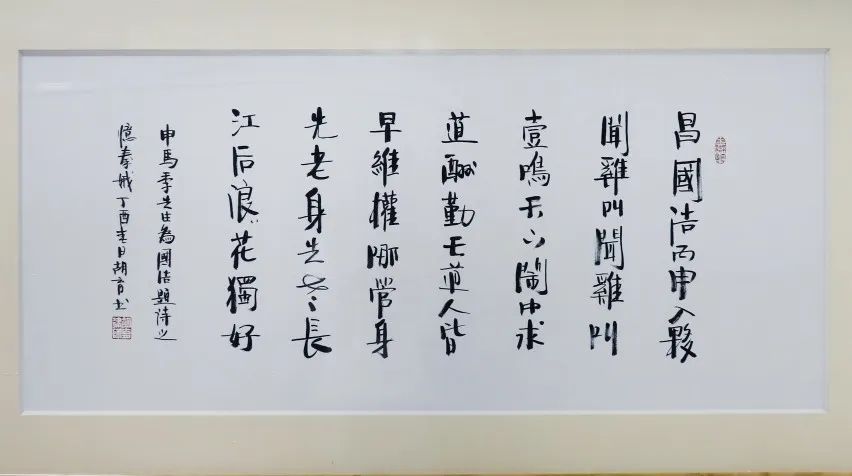 昌國浩丙申入夥
聞雞叫聞雞叫
壹鳴天下鬧中求
道酬勤天道人皆
早維權哪管身
先老身先老長
江后浪花獨好
申馬季先生為國浩題詩之
憶秦娥丁酉春日胡書